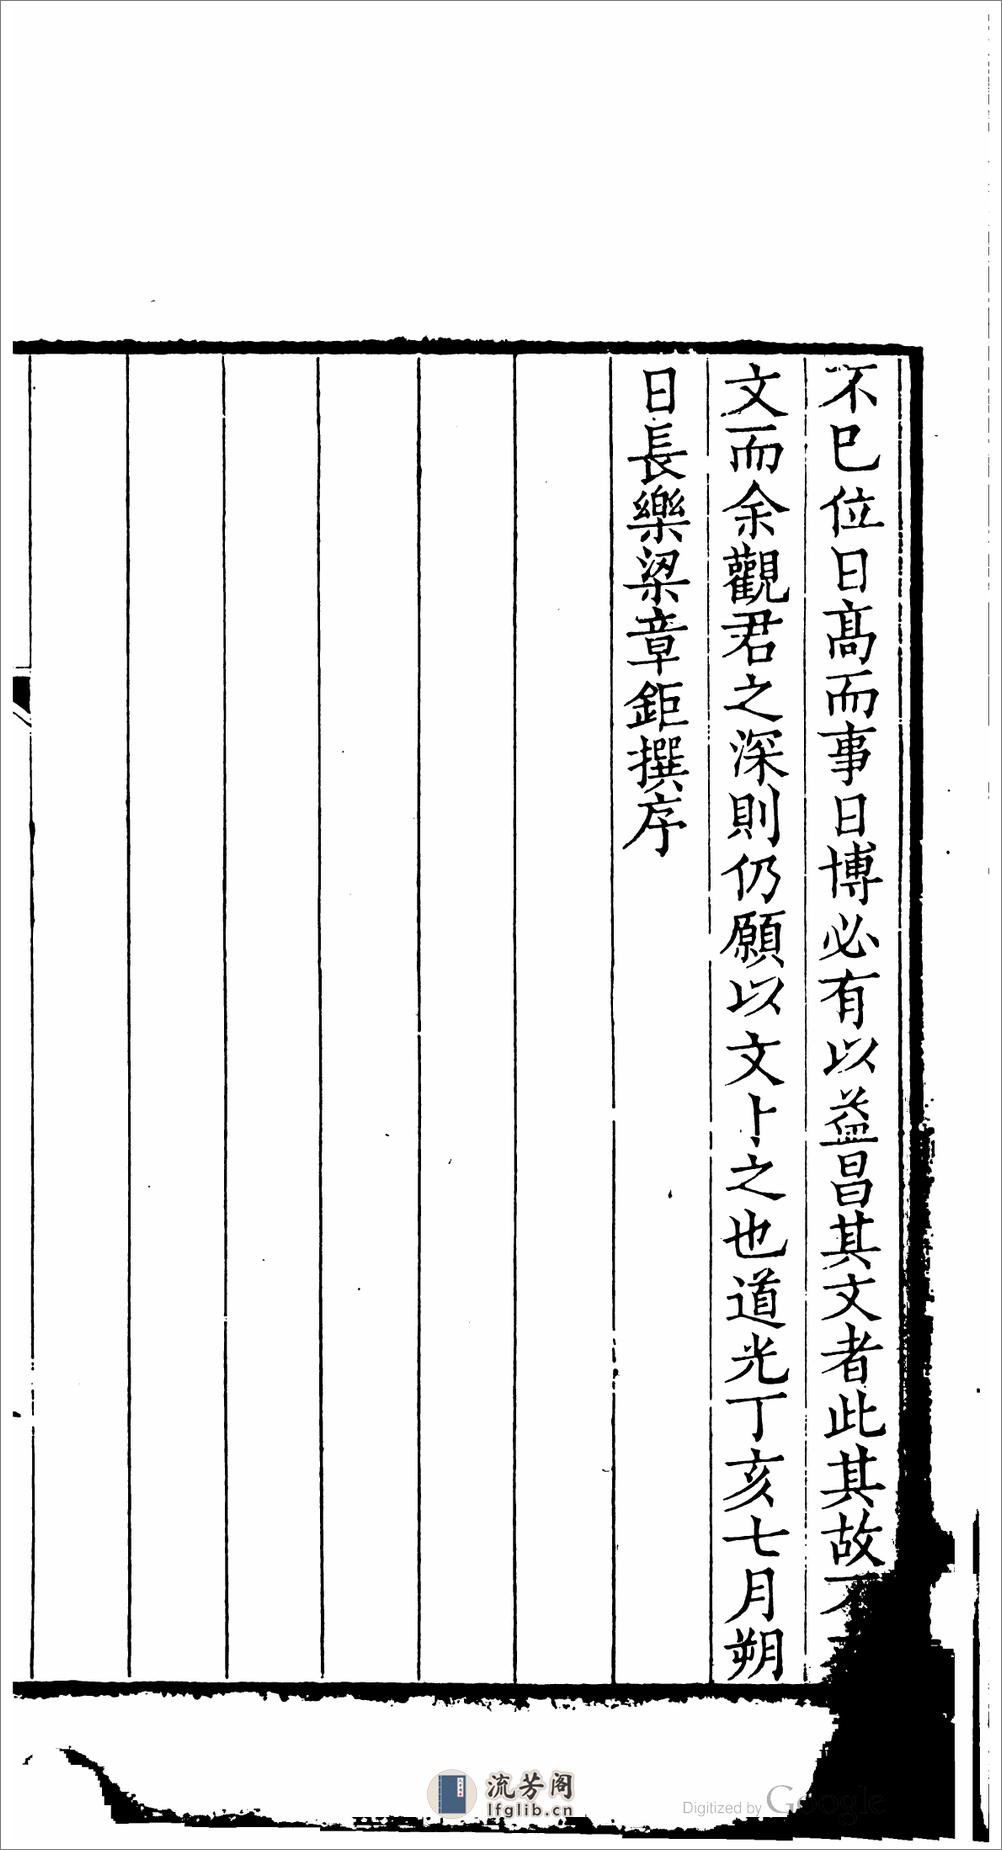 不已位日高而事日博必有以益昌其文者此其故不
文而余觀君之深則仍願以文卜之也道光丁亥七月朔
日長樂梁章鉅撰序
流芳阁
lfglib.cn
Digitized by Google